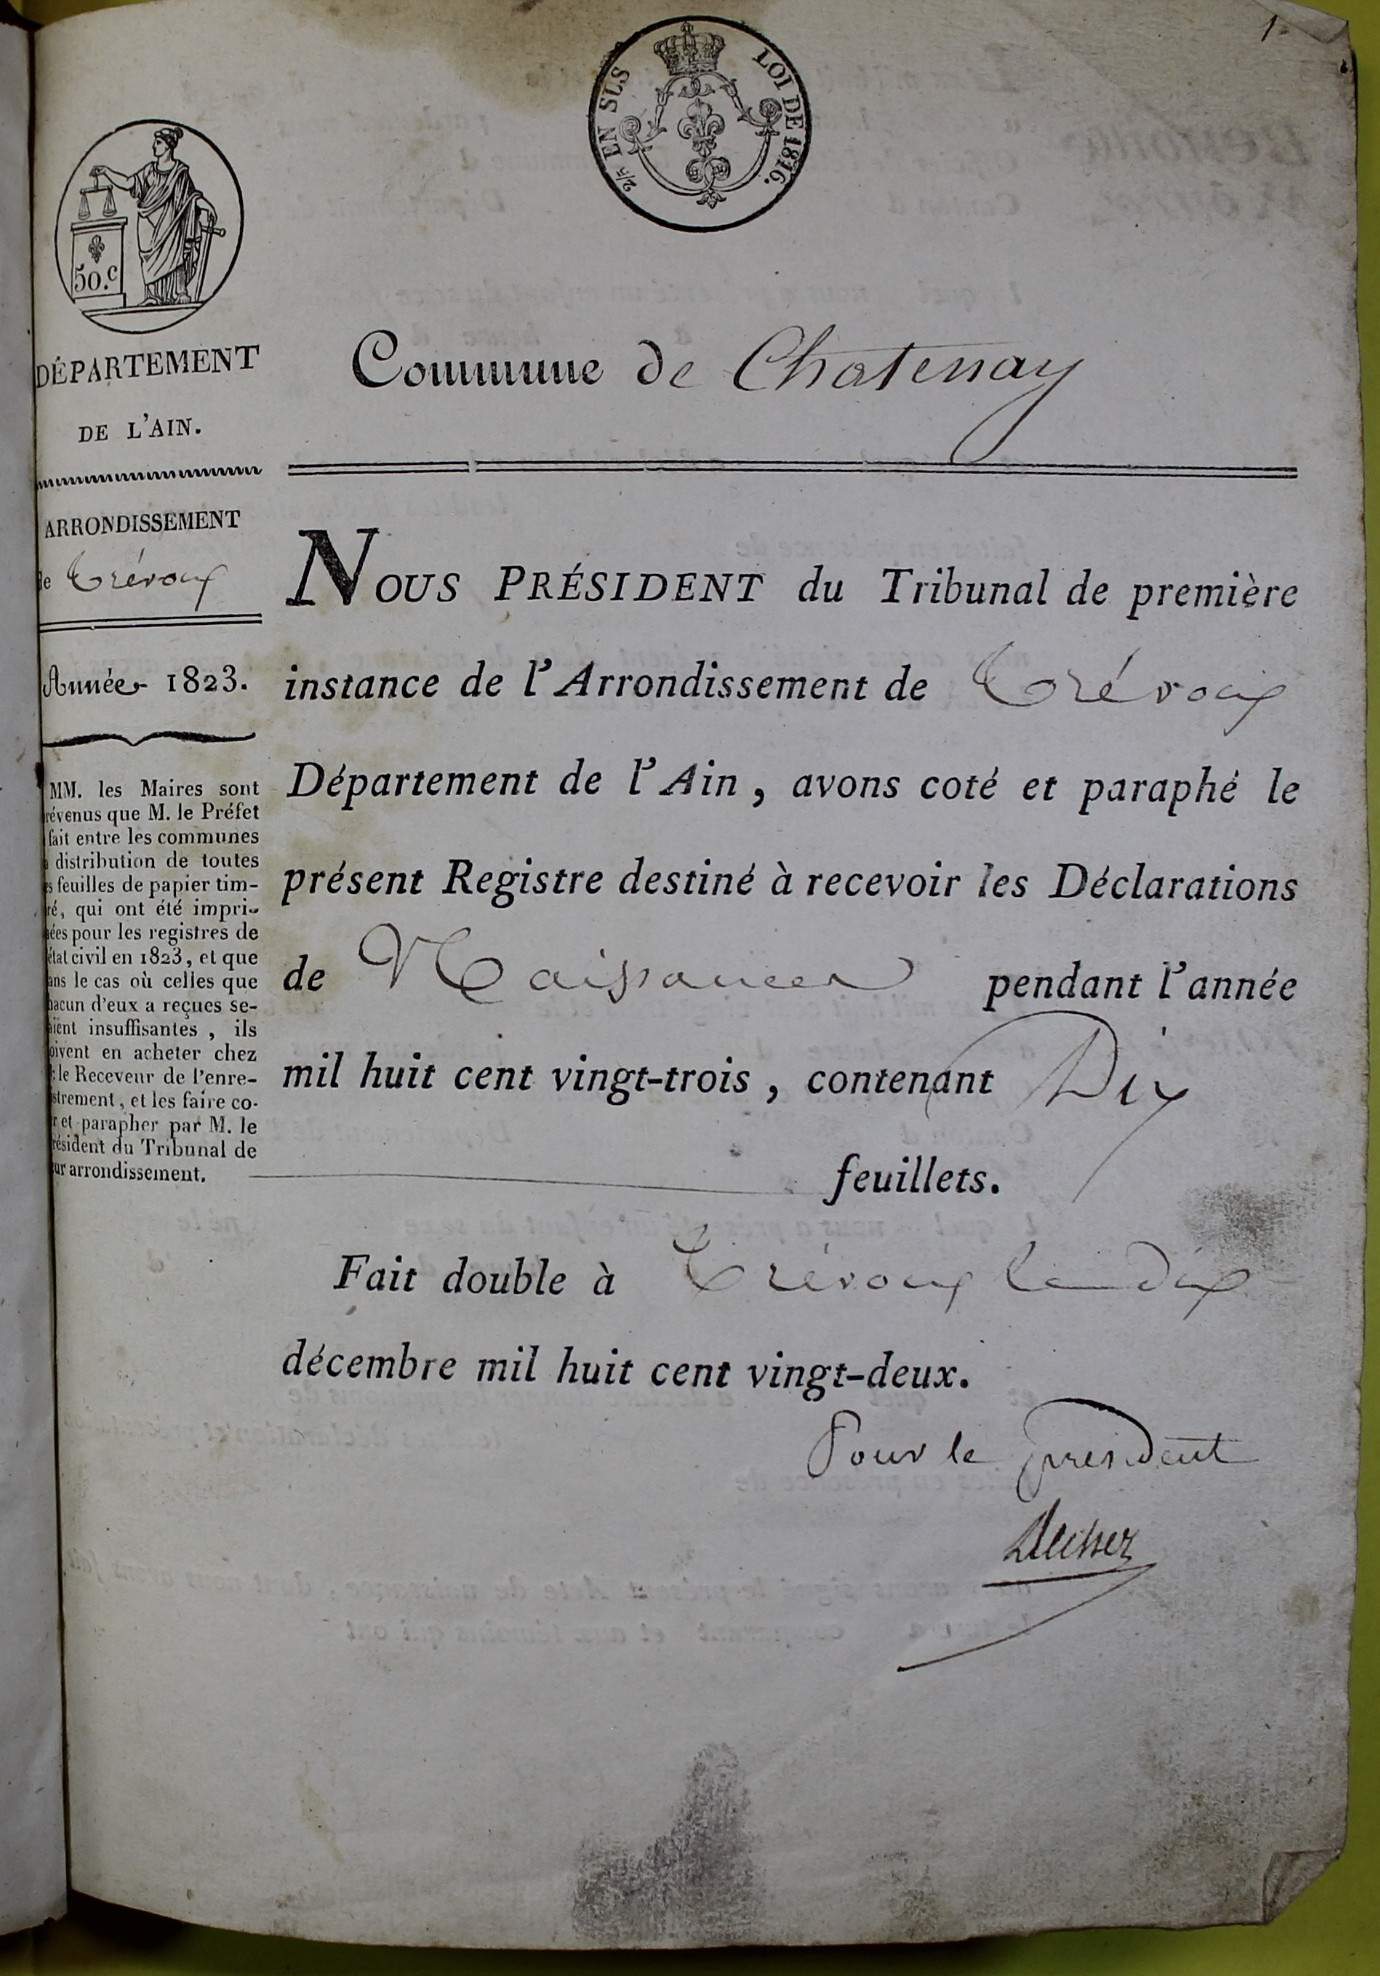 1.
2/5 EN SUS LOI DE 1816.
50.c
DÉPARTEMENT
DE L'AIN.
ARRONDISSEMENT
de Trévoux
Année 1823.
MM. les Maires sont
révenus que M. le Préfet
fait entre les communes
distribution de toutes
feuilles de papier tim-
ré, qui ont été impri-
ées pour les registres de
état civil en 1823, et que
ans le cas où celles que
hacun d'eux a reçues se-
aient insuffisantes, ils
oivent en acheter chez
le Receveur de l'enre-
strement, et les faire co-
r et parapher par M. le
résident du Tribunal de
ur arrondissement.
Commune de Chatenay
NOUS PRÉSIDENT du Tribunal de première
instance de l'Arrondissement de Trévoux
Département de l'Ain, avons coté et paraphé le
présent Registre destiné à recevoir les Déclarations
de Naissances pendant l'année
mil huit cent vingt-trois, contenant Dix
feuillets.
Fait double à Trévoux le dix
décembre mil huit cent vingt-deux.
Pour le president